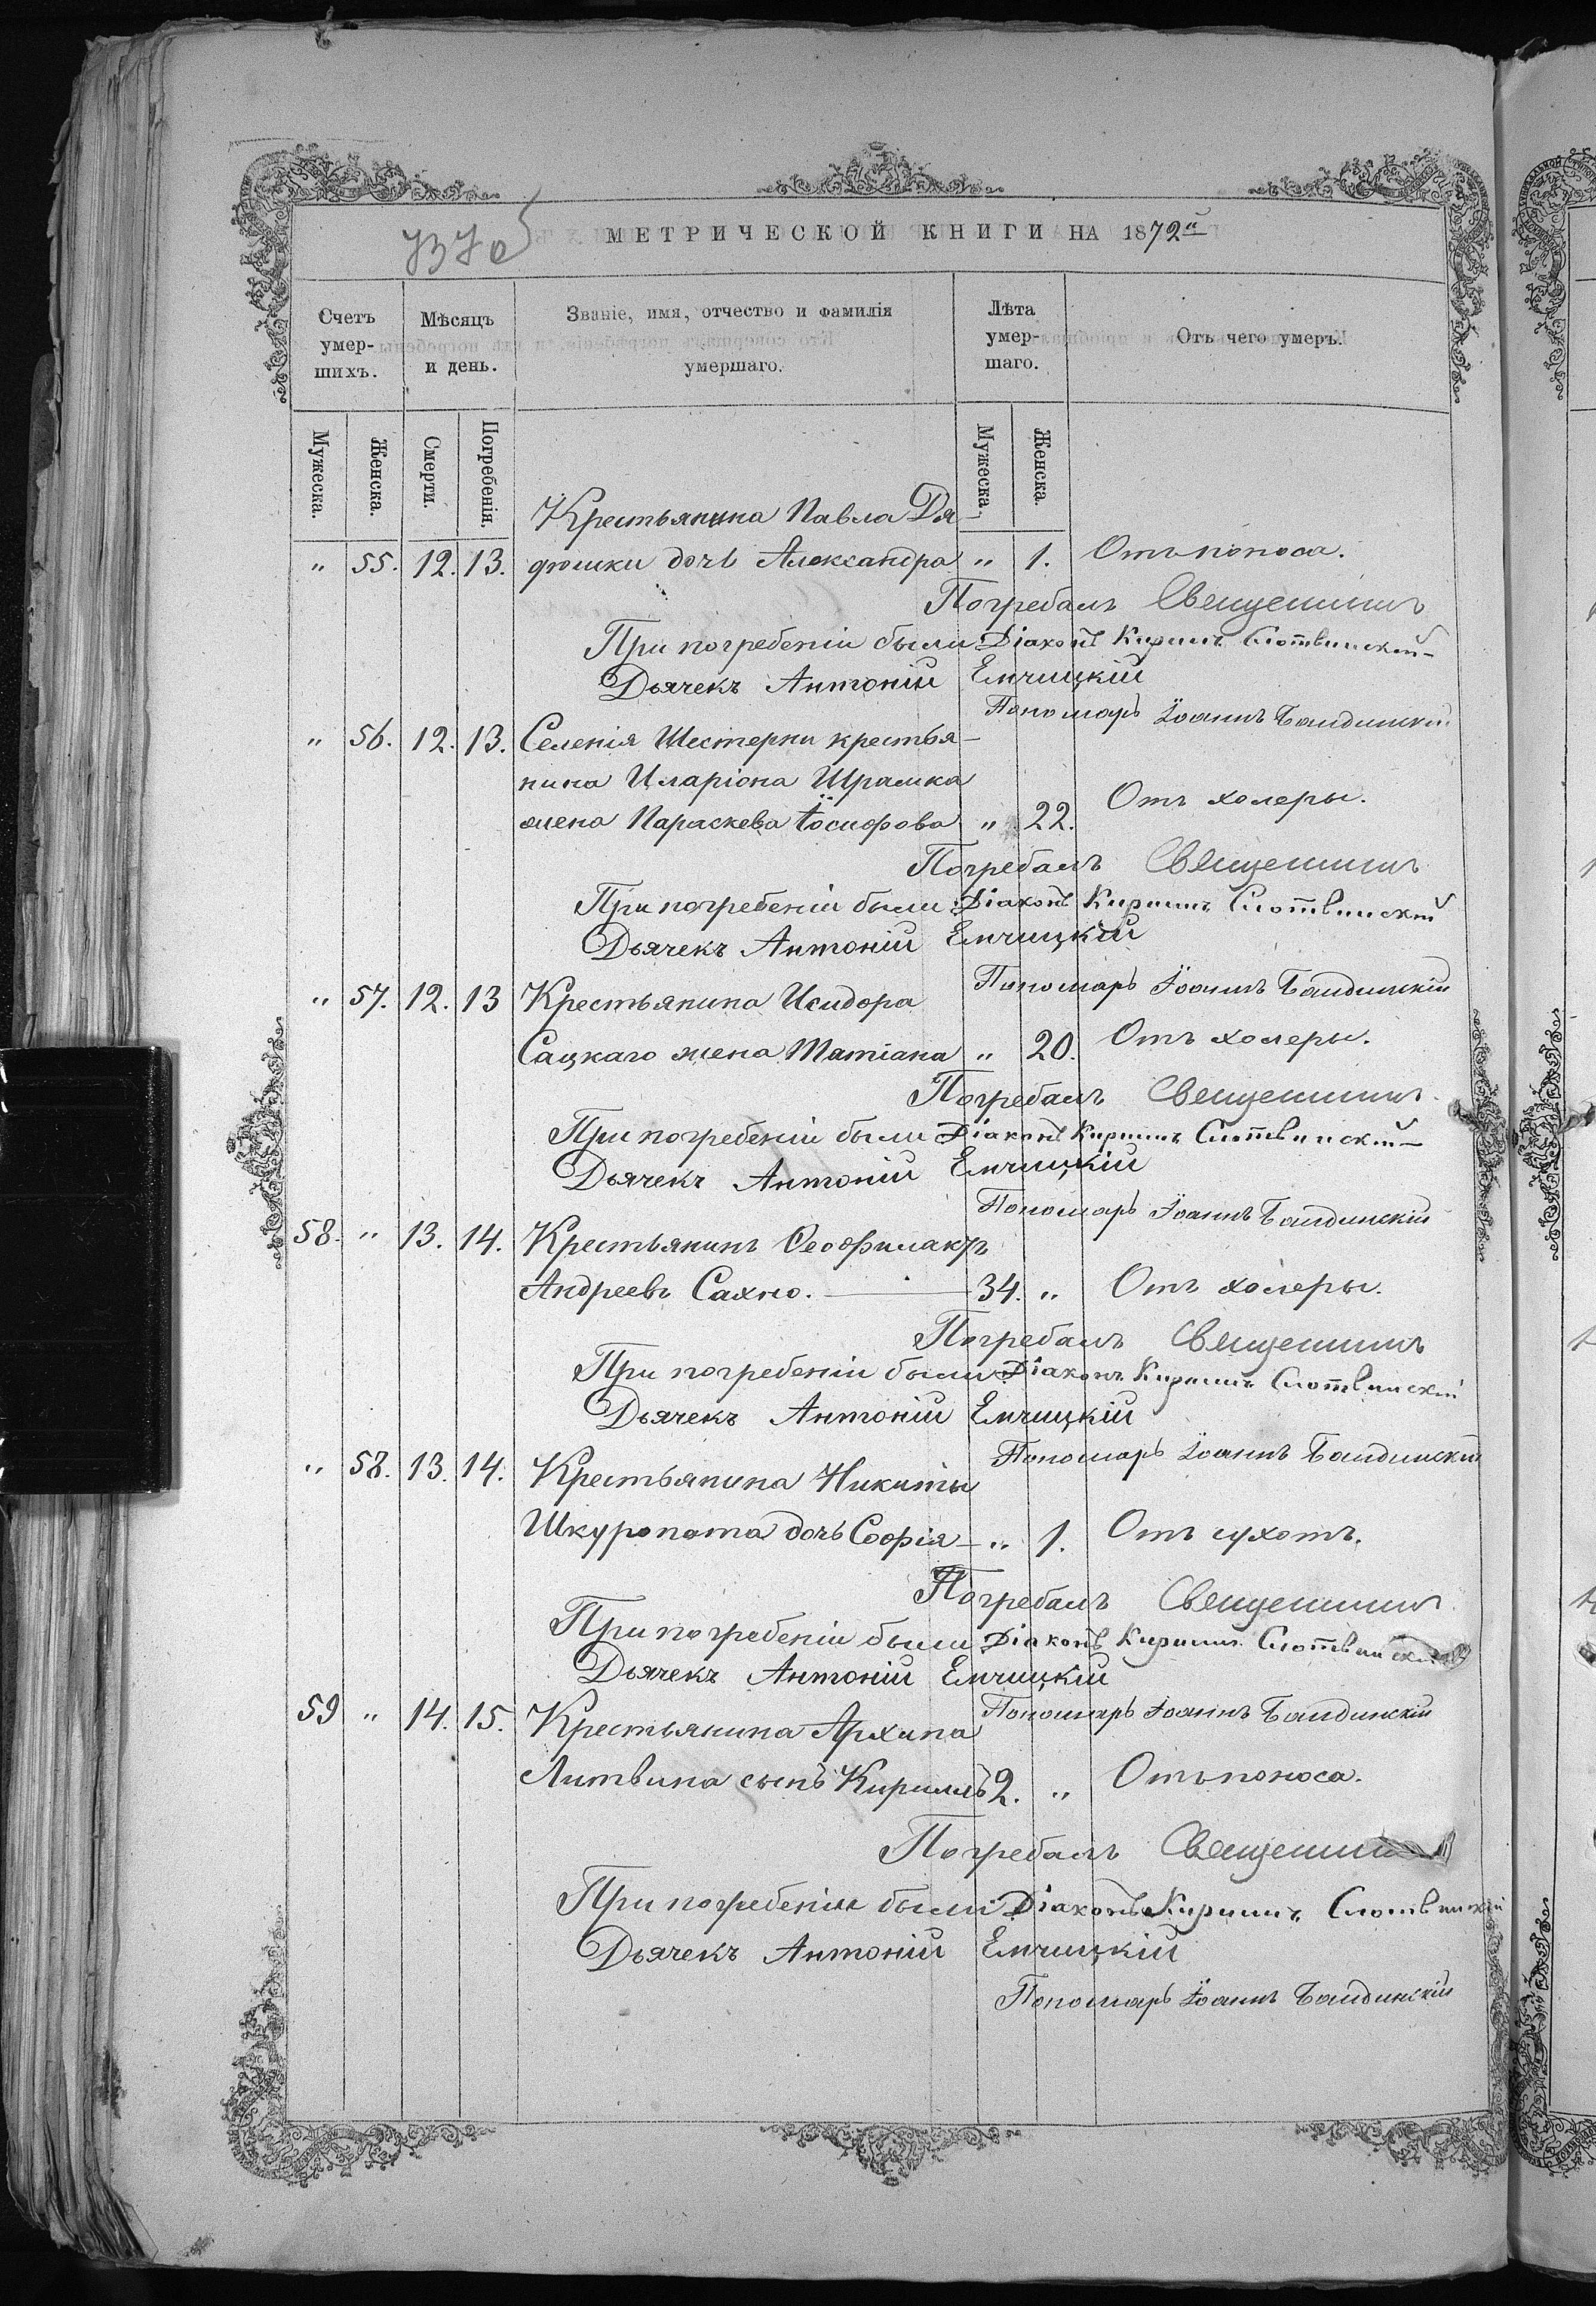 МЕТРИЧЕСКОЙ КНИГИ НА 1872й
Счетъ умер-шихъ.
Мѣсяцъ и день.
Званіе, имя, отчество и фамилія умершаго.
Лѣта умер-шаго.
Отъ чего умеръ.
Мужеска. Женска. Смерти. Погребенія. Мужеска. Женска.
Крестьянина Павла Дя-
" 55. 12. 13. дюшки дочь Александра " 1. Отъ поноса.
Погребалъ Священникъ
При погребеніи были Діаконъ Кириллъ Слотвинскій
Дьячекъ Антоній Емчицкій
Пономарь Іоаннъ Балдинскій
" 56. 12. 13. Селенія Шестерни крестья-
нина Иларіона Шрамка
жена Параскева Іосифова " 22. Отъ холеры.
Погребалъ Священникъ
При погребеніи были Діаконъ Кириллъ Слотвинскій
Дьячекъ Антоній Емчицкій
Пономарь Іоаннъ Балдинскій
" 57. 12. 13 Крестьянина Исидора
Сацкаго жена Татіана " 20. Отъ холеры.
Погребалъ Священникъ
При погребеніи были Діаконъ Кириллъ Слотвинскій
Дьячекъ Антоній Емчицкій
Пономарь Іоаннъ Балдинскій
58. " 13. 14. Крестьянинъ Ѳеофилактъ
Андреевъ Сахно. 34. " Отъ холеры.
Погребалъ Священникъ
При погребеніи были Діаконъ Кириллъ Слотвинскій
Дьячекъ Антоній Емчицкій
Пономарь Іоаннъ Балдинскій
" 58. 13. 14. Крестьянина Никиты
Шкуропата дочь Софія " 1. Отъ сухотъ.
Погребалъ Священникъ
При погребеніи были Діаконъ Кириллъ Слотвинскій
Дьячекъ Антоній Емчицкій
Пономарь Іоаннъ Балдинскій
59 " 14. 15. Крестьянина Архипа
Литвина сынъ Кириллъ 2. " Отъ поноса.
Погребалъ Священникъ
При погребеніи были Діаконъ Кириллъ Слотвинскій
Дьячекъ Антоній Емчицкій
Пономарь Іоаннъ Балдинскій